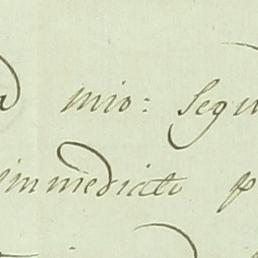 mio: Segu
immediate p